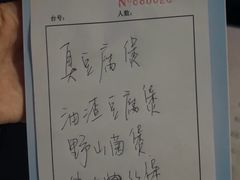 No 000020
台号:
人数:
真豆腐煲
油渣豆腐煲
野山菌煲